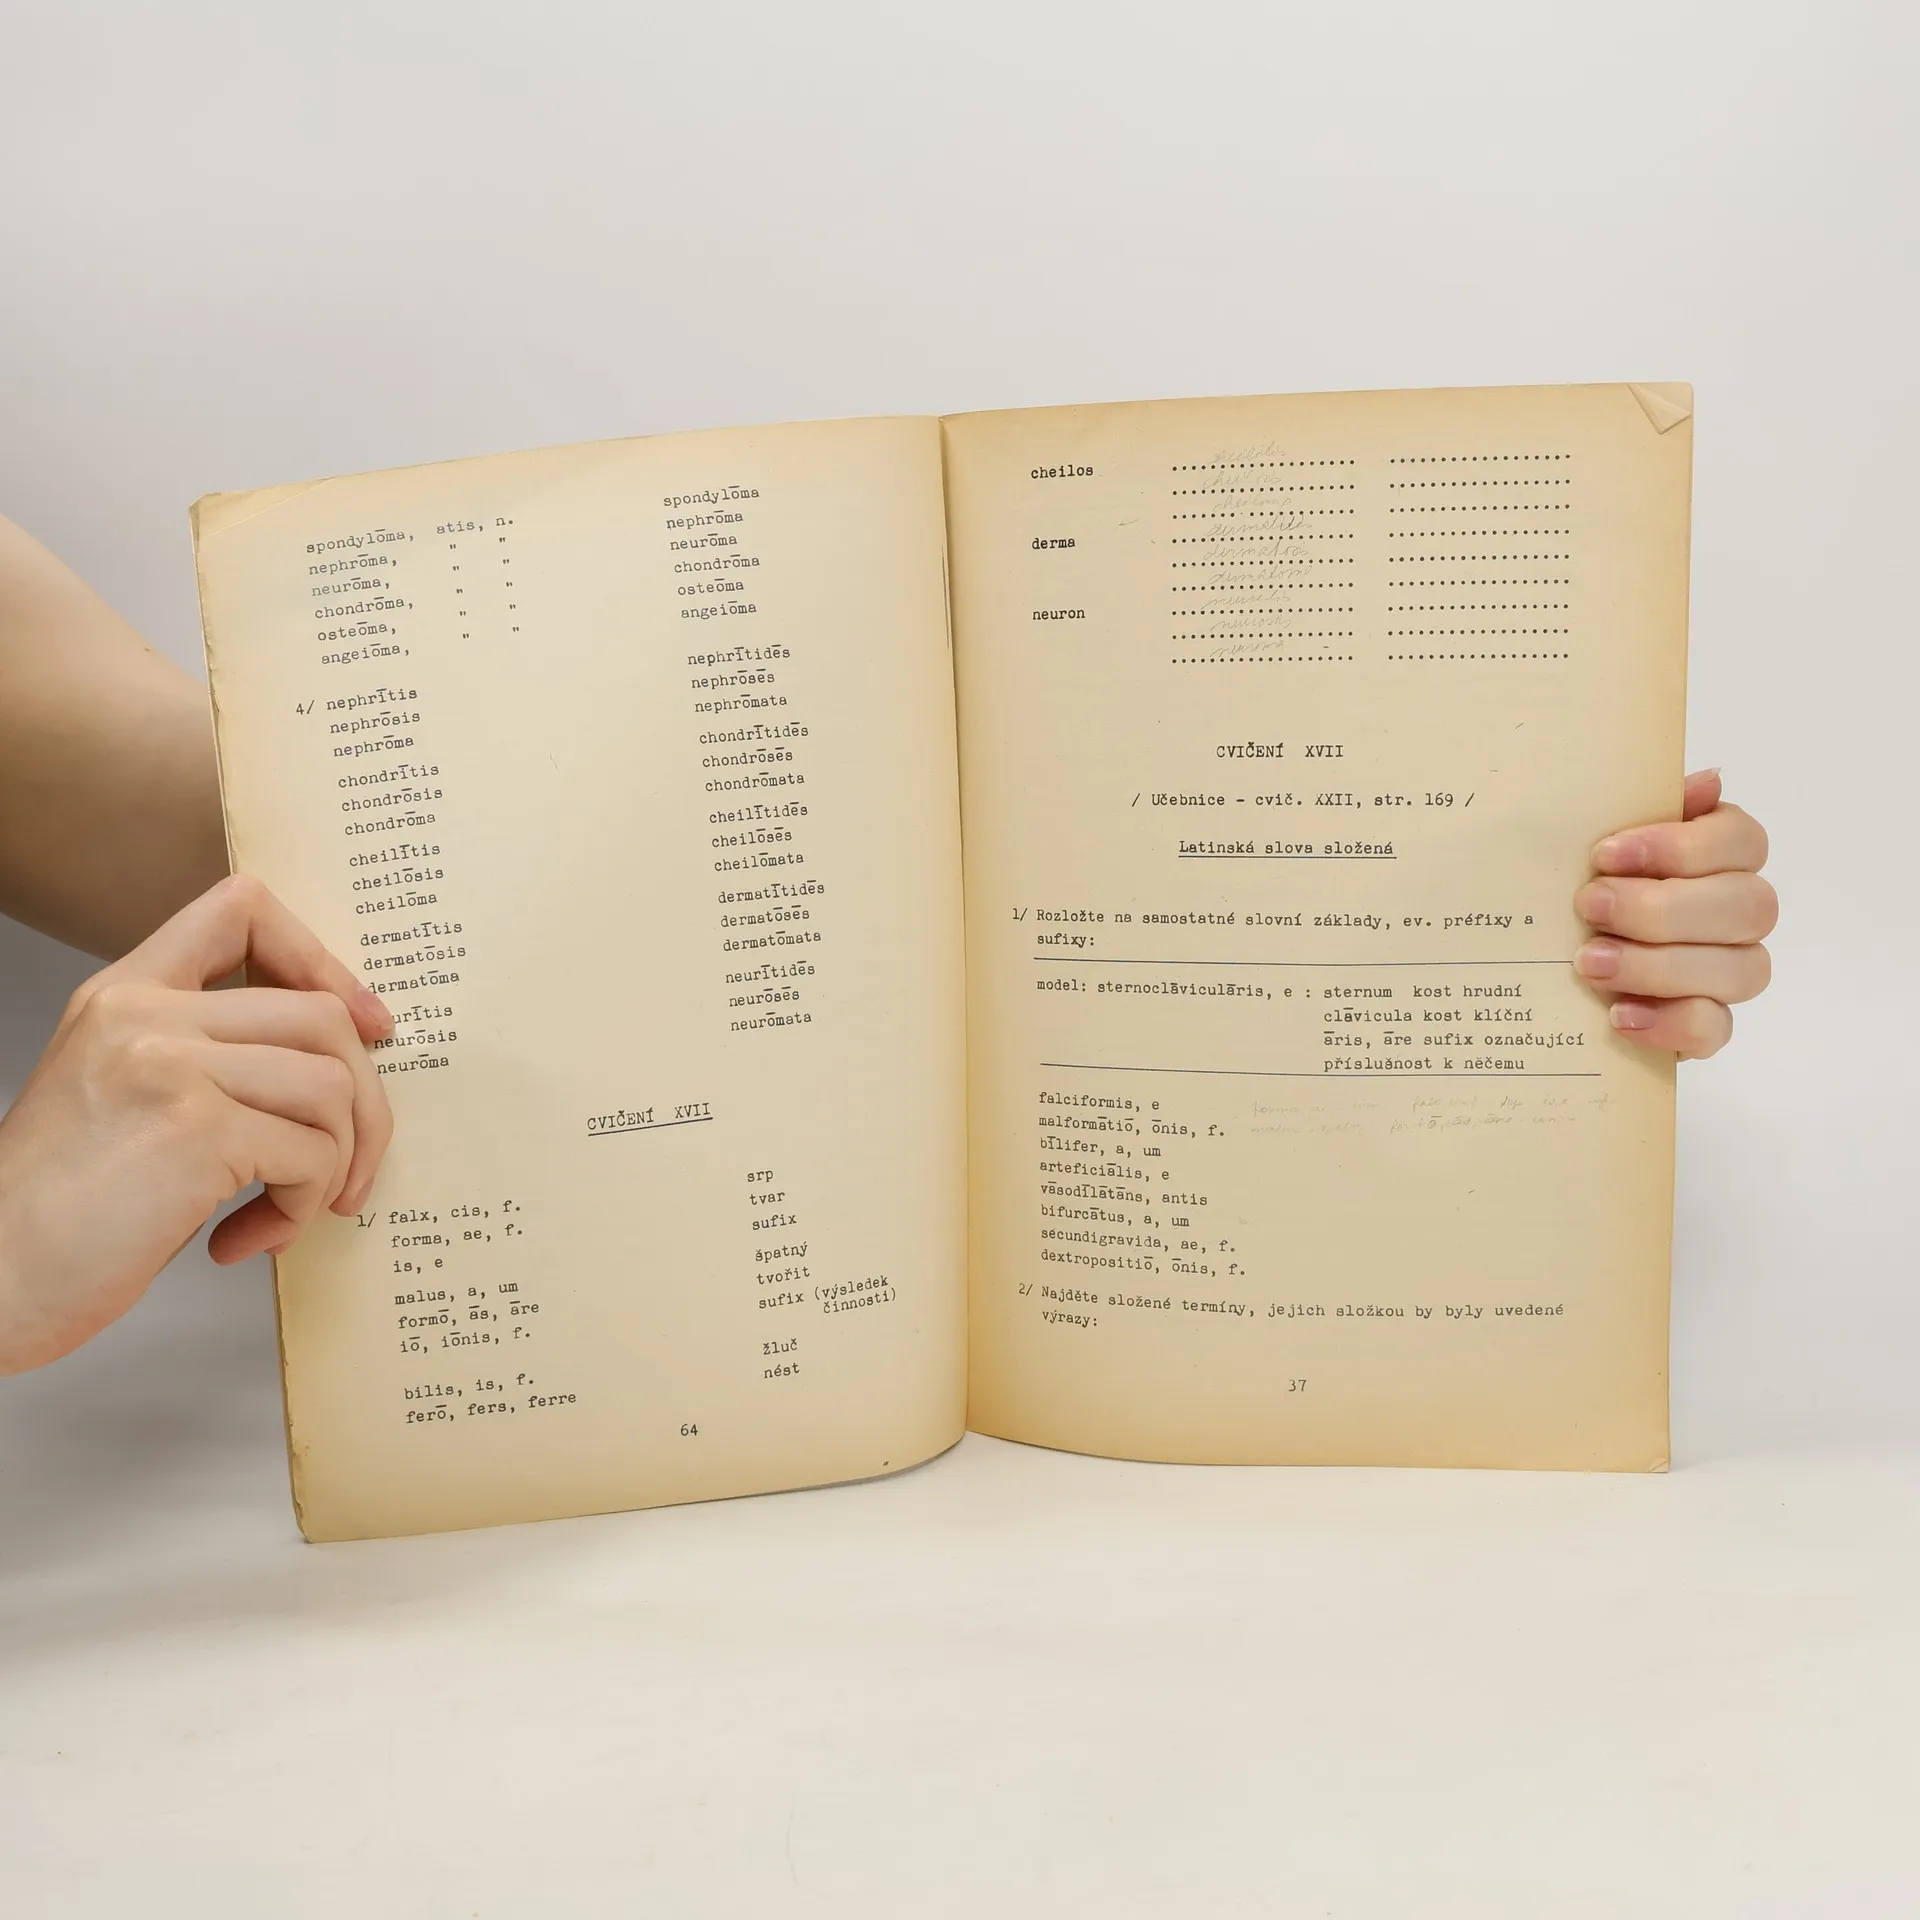 spondylōma, atis, n. spondylōma
nephrōma, " " nephrōma
neurōma, " " neurōma
chondrōma, " " chondrōma
osteōma, " " osteōma
angeiōma, " " angeiōma
4/ nephrītis nephrītidēs
nephrōsis nephrōsēs
nephrōma nephrōmata
chondrītis chondrītidēs
chondrōsis chondrōsēs
chondrōma chondrōmata
cheilītis cheilītidēs
cheilōsis cheilōsēs
cheilōma cheilōmata
dermatītis dermatītidēs
dermatōsis dermatōsēs
dermatōma dermatōmata
urītis neurītidēs
neurōsis neurōsēs
neurōma neurōmata
CVIČENÍ XVII
1/ falx, cis, f. srp
forma, ae, f. tvar
is, e sufix
malus, a, um špatný
formō, ās, āre tvořit
iō, iōnis, f. sufix (výsledek
činnosti)
bilis, is, f. žluč
ferō, fers, ferre nést
64
cheilos
derma
neuron
CVIČENÍ XVII
/ Učebnice - cvič. XXII, str. 169 /
Latinská slova složená
1/ Rozložte na samostatné slovní základy, ev. préfixy a
sufixy:
model: sternoclāviculāris, e : sternum kost hrudní
clāvicula kost klíční
āris, āre sufix označující
příslušnost k něčemu
falciformis, e
malformātiō, ōnis, f.
bīlifer, a, um
arteficiālis, e
vāsodīlātāns, antis
bifurcātus, a, um
secundigravida, ae, f.
dextropositiō, ōnis, f.
2/ Najděte složené termíny, jejich složkou by byly uvedené
výrazy:
37